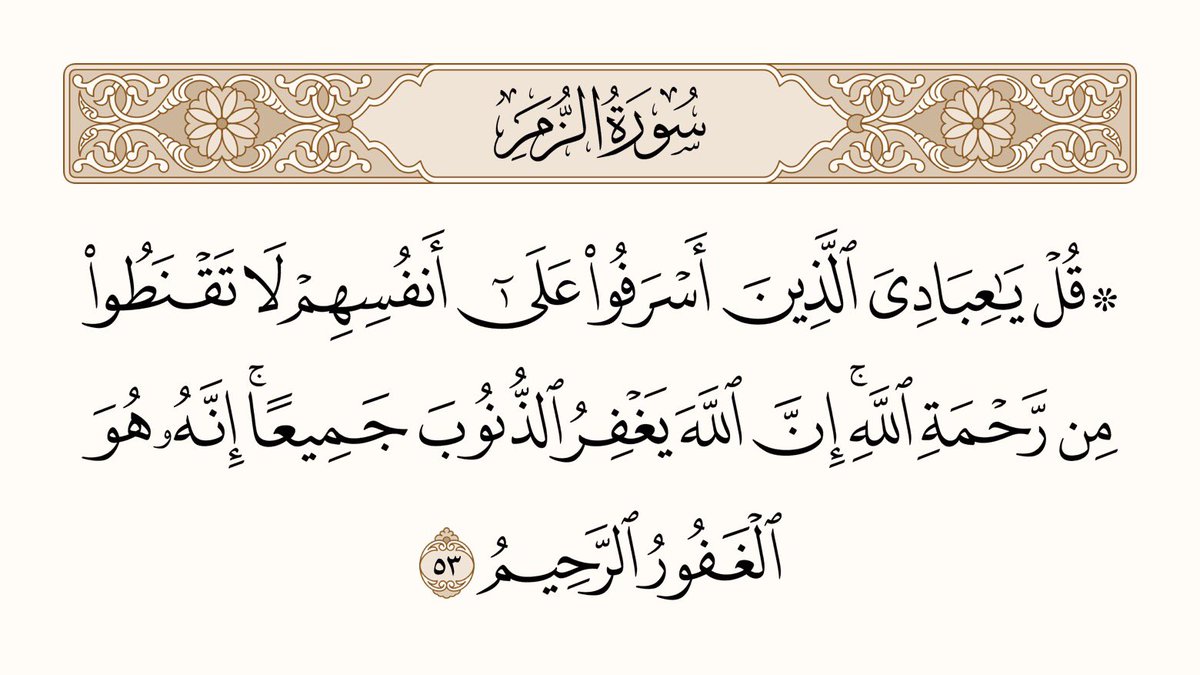 سُورَةُ الزُّمَرِ
۞ قُلْ يَـٰعِبَادِىَ ٱلَّذِينَ أَسْرَفُوا۟ عَلَىٰٓ أَنفُسِهِمْ لَا تَقْنَطُوا۟
مِن رَّحْمَةِ ٱللَّهِ ۚ إِنَّ ٱللَّهَ يَغْفِرُ ٱلذُّنُوبَ جَمِيعًا ۚ إِنَّهُۥ هُوَ
ٱلْغَفُورُ ٱلرَّحِيمُ ٥٣